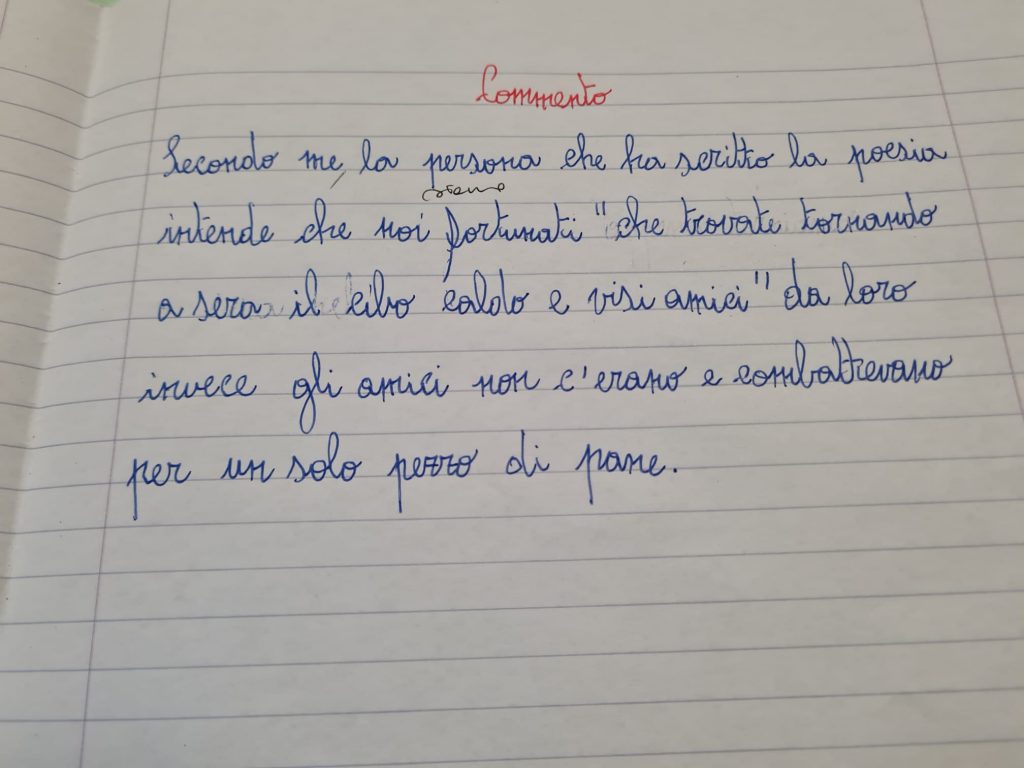 Commento
Secondo me, la persona che ha scritto la poesia
intende che noi fortunati "che trovate tornando
a sera il cibo caldo e visi amici" da loro
invece gli amici non c'erano e combattevano
per un solo pezzo di pane.